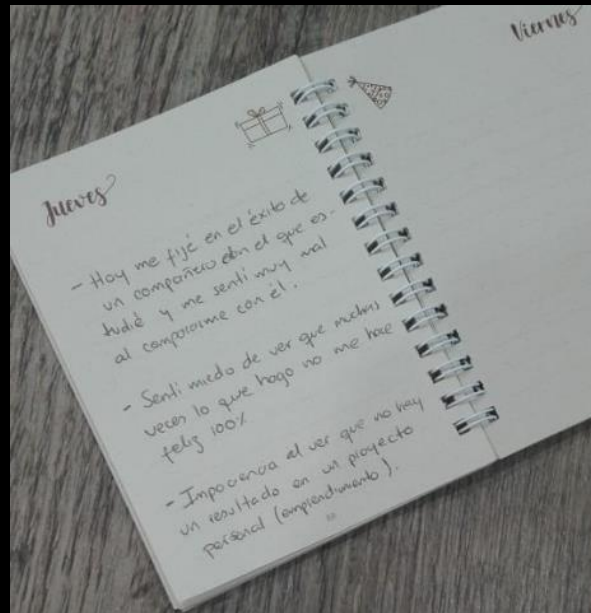 Jueves
- Hoy me fijé en el éxito de
un compañero con el que es-
tudié y me sentí muy mal
al compararme con él.
- Sentí miedo de ver que muchas
veces lo que hago no me hace
feliz 100%
- Impaciencia al ver que no hay
un resultado en un proyecto
personal (emprendimiento).
Viernes